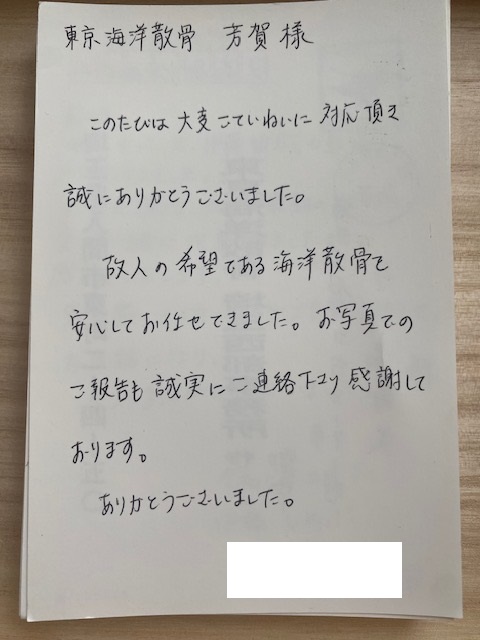 東京海洋散骨 芳賀様
このたびは大変ごていねいに対応頂き
誠にありがとうございました。
故人の希望である海洋散骨で
安心してお任せできました。お写真での
ご報告も誠実にご連絡下さり感謝して
おります。
ありがとうございました。